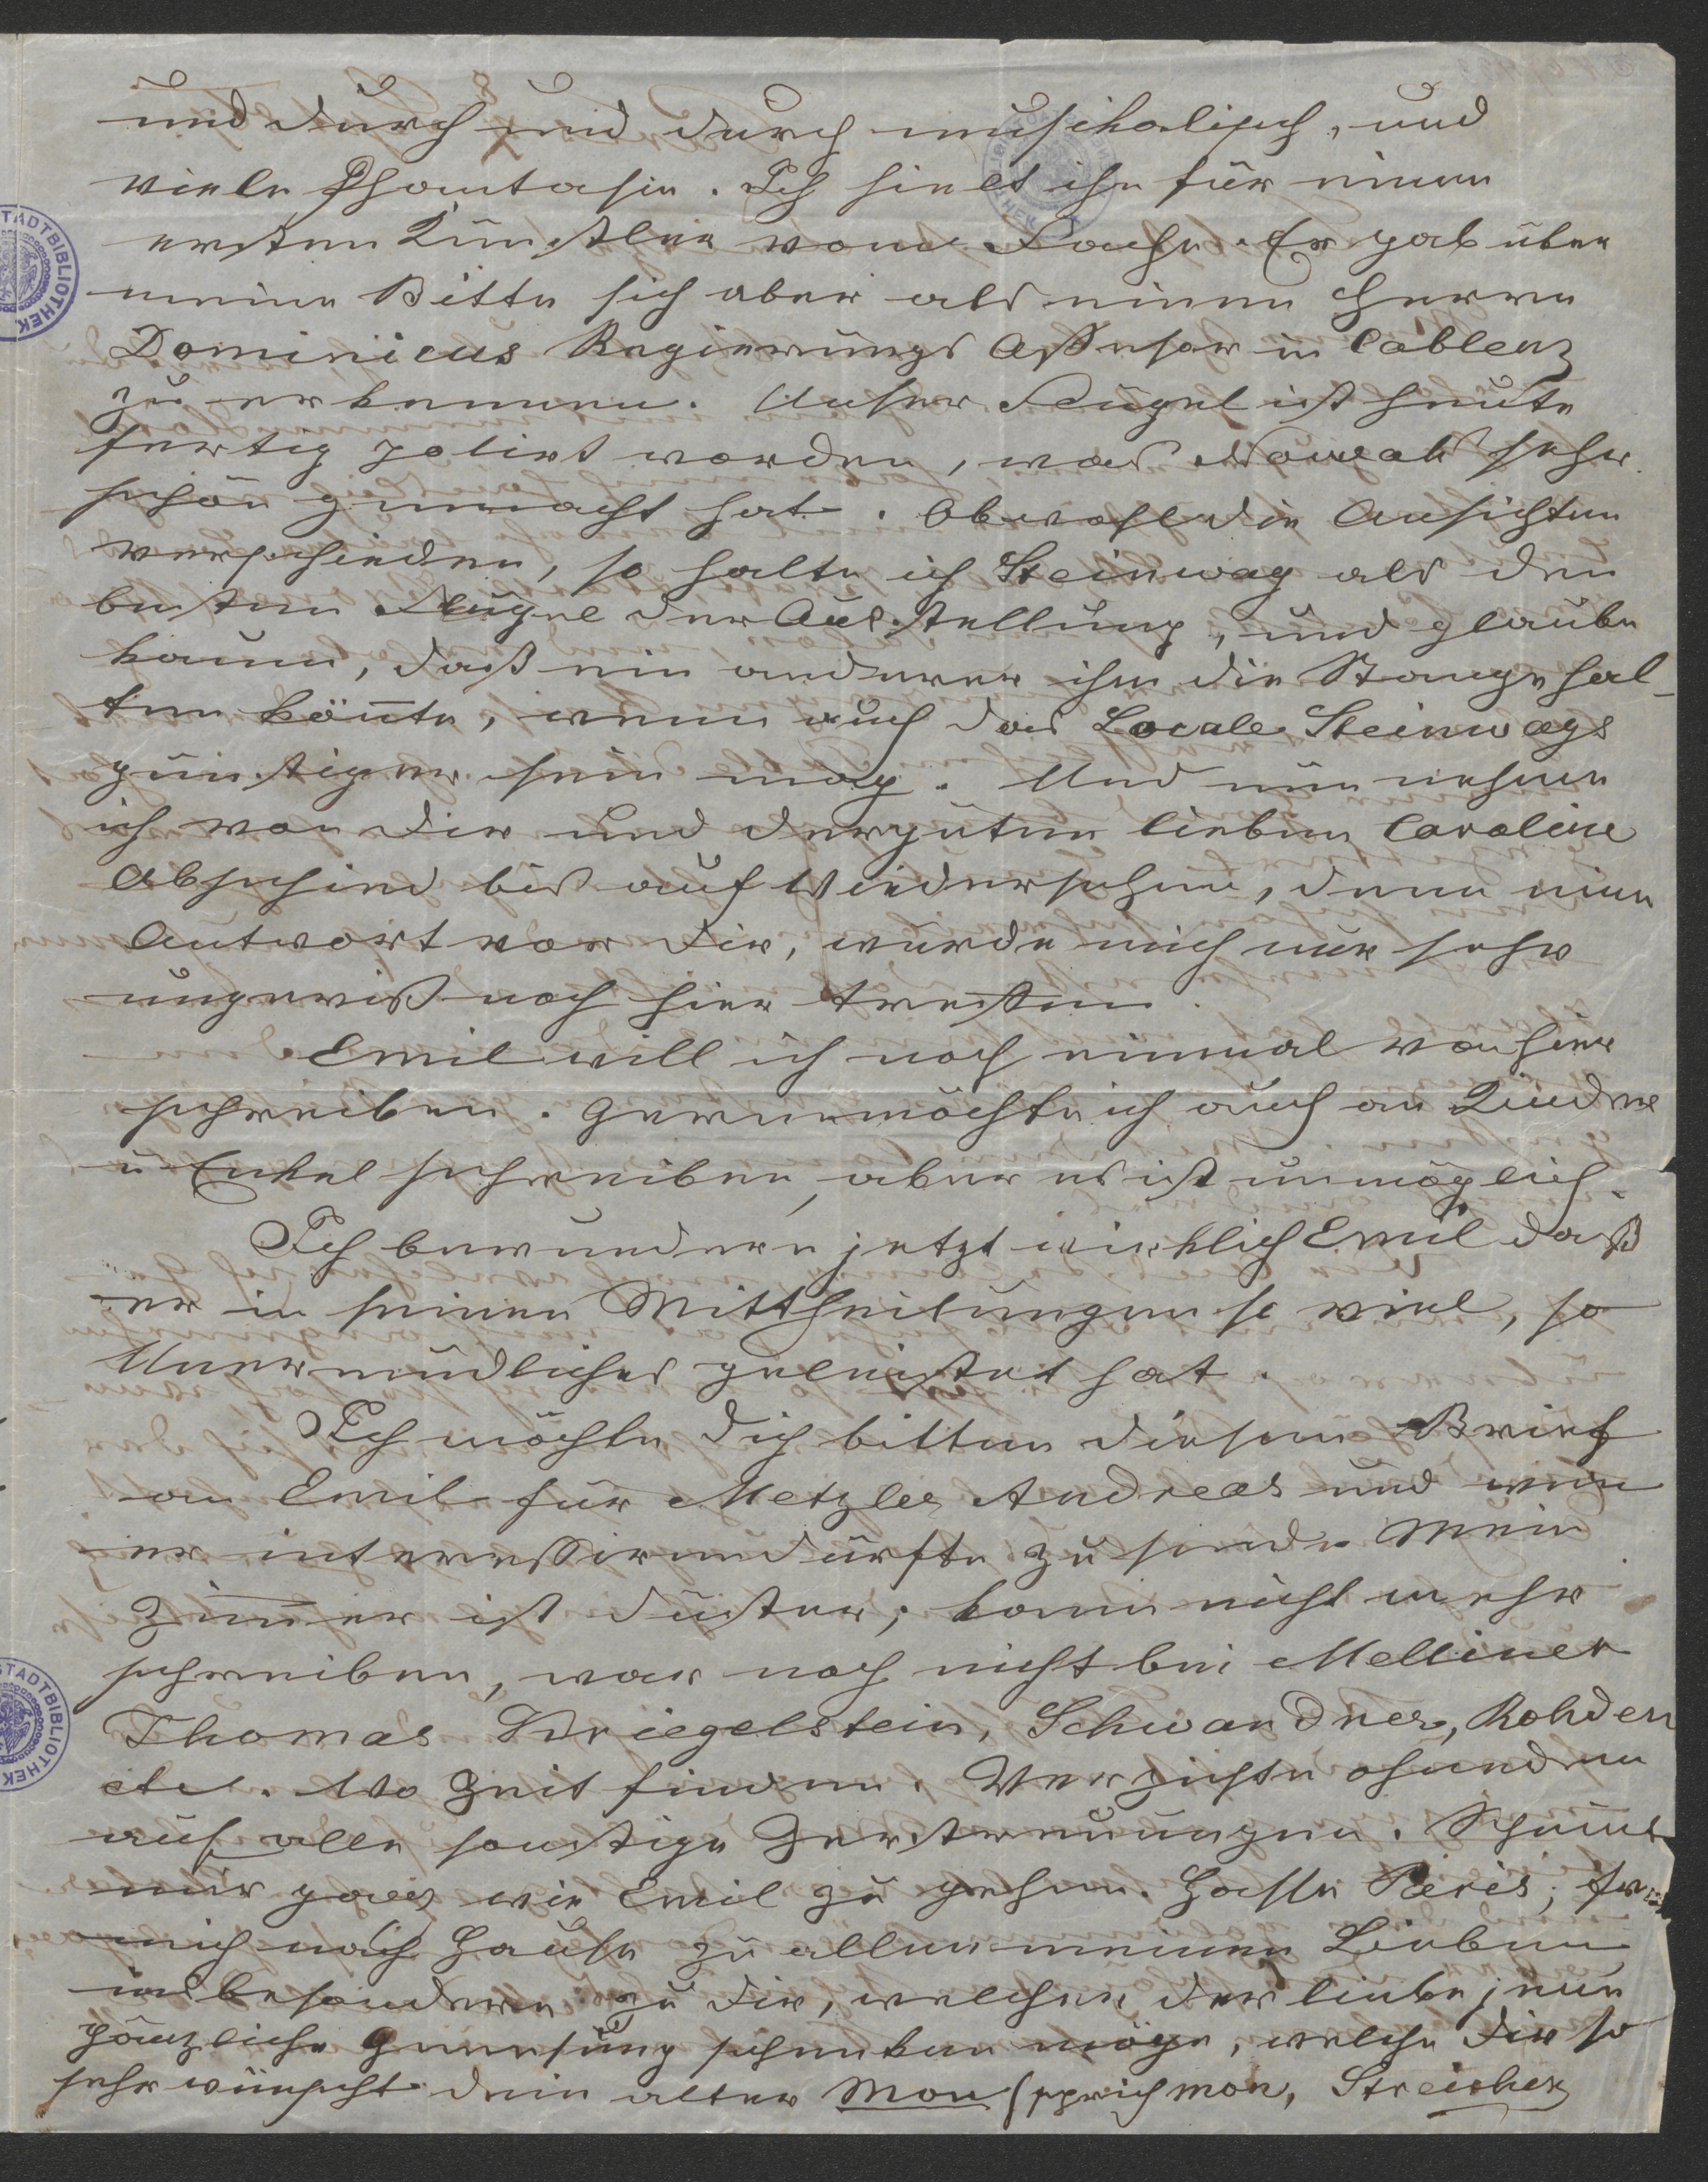 und durch und durch musikalisch, und
viele Phantasie. Ich hielt ihn für einen
ersten Künstler vom Fache. Er gab über
meine Bitte sich aber als einen Herrn
Dominicus Regierungs Assessor in Coblenz
zu erkennen. Unser Flügel ist heute
fertig polirt worden, was Nowak sehr
schön gemacht hat. Obwohl die Ansichten
verschieden, so halte ich Steinway als den
besten Flügel der Ausstellung, und glaube
kaum, daß ein anderer ihm die Stange hal-
ten könnte, wenn auch das Locale Steinways
günstiger sein mag. Und nun nehme
ich von Dir und der guten lieben Caroline
Abschied bis auf Wiedersehen, denn eine
Antwort von Dir, würde mich nur sehr
ungewiß noch hier treffen.
Emil will ich noch einmal von hier
schreiben. Gerne möchte ich auch an Kinder
u Enkel schreiben, aber es ist unmöglich.
Ich bewundere jetzt wirklich Emil daß
er in seinen Mittheilungen so viel, so
Unermüdliches geleistet hat.
Ich möchte Dich bitten diesen Brief
an Emil für Metzler Andreas und wen
er interessiren dürfte zu senden. Mein
Zimmer ist düster; kann nicht mehr
schreiben, war noch nicht bei Mellinet
Thomas Kriegelstein, Schwandner, Rohden
etc. Wo Zeit finden. Verzichte ohnedem
auf alle sonstige Zerstreuungen. Scheint
mir ganz wie Emil zu gehen. Hasse Paris;
mich nach Hause zu allen meinen Lieben
insbesondere zu Dir, welcher der liebe jene
gänzliche Genesung schenken möge, welche Dir so
sehr wünscht dein alter Mon (sprich mon, Streicher
STADTBIBLIOTHEK
STADTBIBLIOTHEK